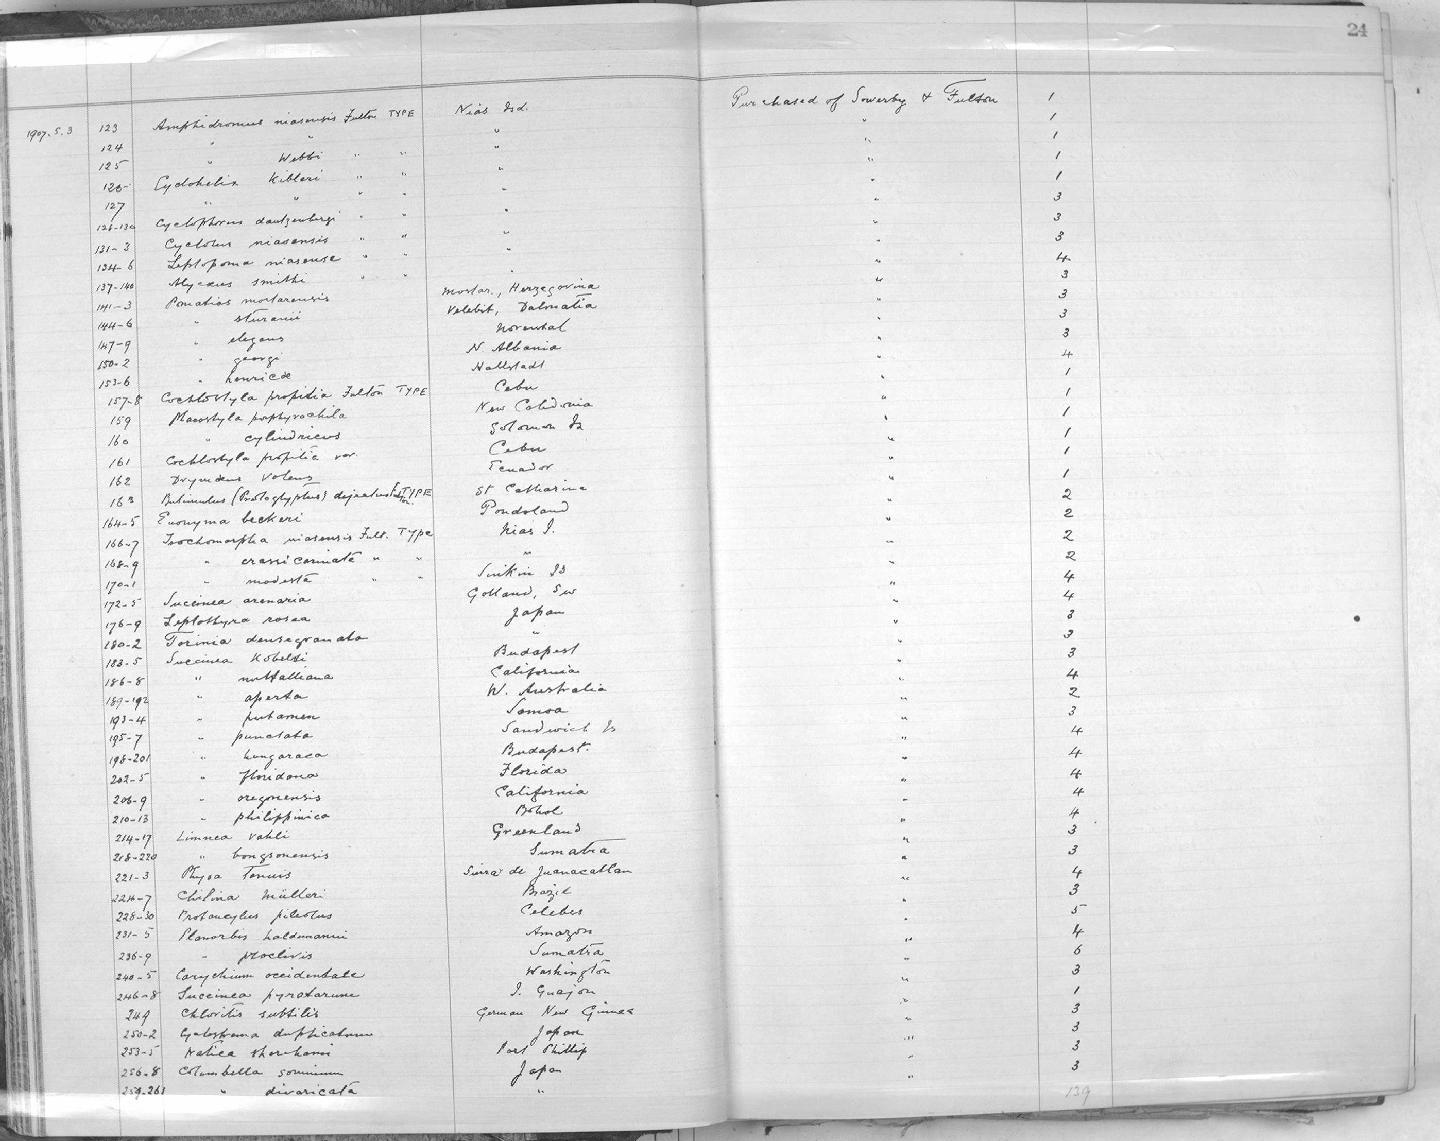 24
1907.5.3 123 Amphidromus niasensis Fulton TYPE Nias Isd. Purchased of Sowerby & Fulton 1
124 " " " " 1
125 " Webbi " " " " 1
126 Cyclohelix Kibleri " " " " 1
127 " " " " " " 1
128-130 Cyclophorus dautzenbergi " " " " 3
131-3 Cyclotus niasensis " " " " 3
134-6 Leptopoma niasense " " " " 3
137-140 Alycaeus smithi " " " " 4
141-3 Pomatias mostarensis Mostar, Herzegovina " 3
144-6 " sturanii Velebit, Dalmatia " 3
147-9 " elegans " 3
150-2 " georgi N. Albania " 3
153-6 " henricae Hallstadt " 4
157-8 Cochlostyla propitia Fulton TYPE Cebu " 1
159 Placostyla porphyrochila New Caledonia " 1
160 " cylindricus Solomon Is " 1
161 Cochlostyla propitia var. Cebu " 1
162 Drymaeus Ecuador " 1
163 Bulimulus (Protoglyptus) dejectus Fulton. TYPE St Catharine " 1
164-5 Euonyma beckeri Pondoland " 2
166-7 Trochomorpha niasensis Fult. TYPE Nias I. " 2
168-9 " crassicarinata " " " " 2
170-1 " modesta " " " 2
172-5 Succinea arenaria Gotland, Sw " 4
176-9 Leptothyra rosea Japan " 4
180-2 Torinia densegranata " " 3
183-5 Succinea Kobelti Budapest " 3
186-8 " nuttalliana California " 3
189-192 " aperta W. Australia " 4
193-4 " putamen Samoa " 2
195-7 " punctata Sandwich Is " 3
198-201 " hungarica Budapest. " 4
202-5 " floridana Florida " 4
206-9 " oregonensis California " 4
210-13 " philippinica Bohol " 4
214-17 Limnea vahli Greenland " 4
218-220 " bongsonensis Sumatra " 3
221-3 Physa tenuis Sierra de Juanacatlan " 3
224-7 Chilina Mülleri Brazil " 4
228-30 Protancylus pileolus Celebes " 3
231-5 Planorbis haldemanii Amazon " 5
236-9 " proclivis Sumatra " 4
240-5 Carychium occidentale Washington " 6
246-8 Succinea pyrotarum " 3
249 Chloritis subtilis German New Guinea " 1
250-2 Cyclostrema duplicatum Japan " 3
253-5 Natica shorehami Port Phillip " 3
256-8 Columbella Japan " 3
259-261 " divaricata " " 3
139